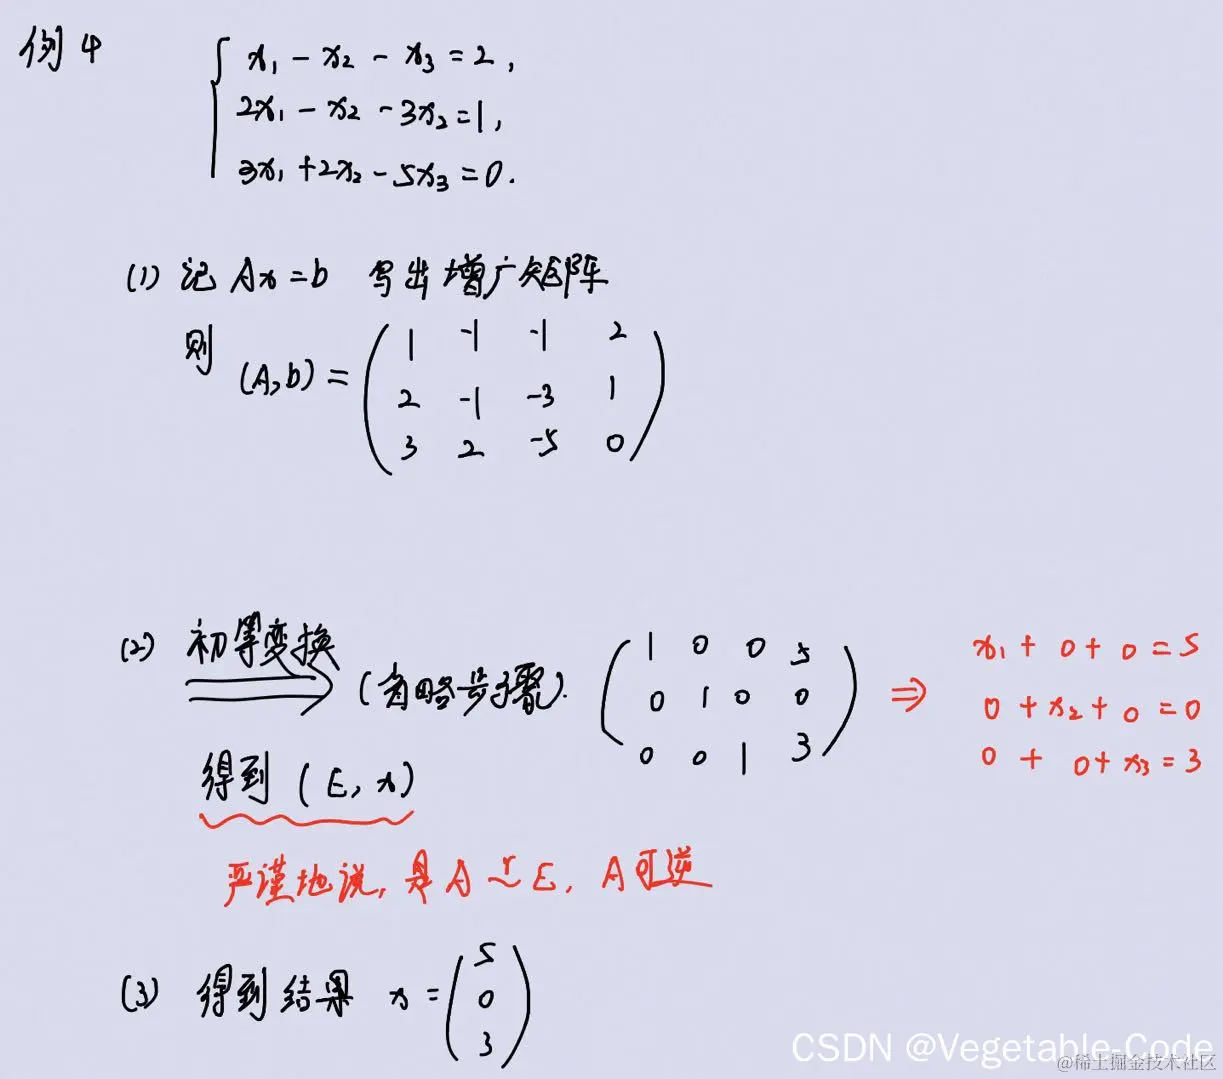 例4
x₁ - x₂ - x₃ = 2,
2x₁ - x₂ - 3x₂ = 1,
3x₁ + 2x₂ - 5x₃ = 0.
(1) 记 Ax = b 写出增广矩阵
则 (A,b) =
1 -1 -1 2
2 -1 -3 1
3 2 -5 0
(2) 初等变换 (省略步骤).
1 0 0 5
0 1 0 0
0 0 1 3
⇒
x₁ + 0 + 0 = 5
0 + x₂ + 0 = 0
0 + 0 + x₃ = 3
得到 (E, x)
严谨地说, 是 A ~r E, A可逆
(3) 得到结果 x =
5
0
3
CSDN @Vegetable-Code
@稀土掘金技术社区